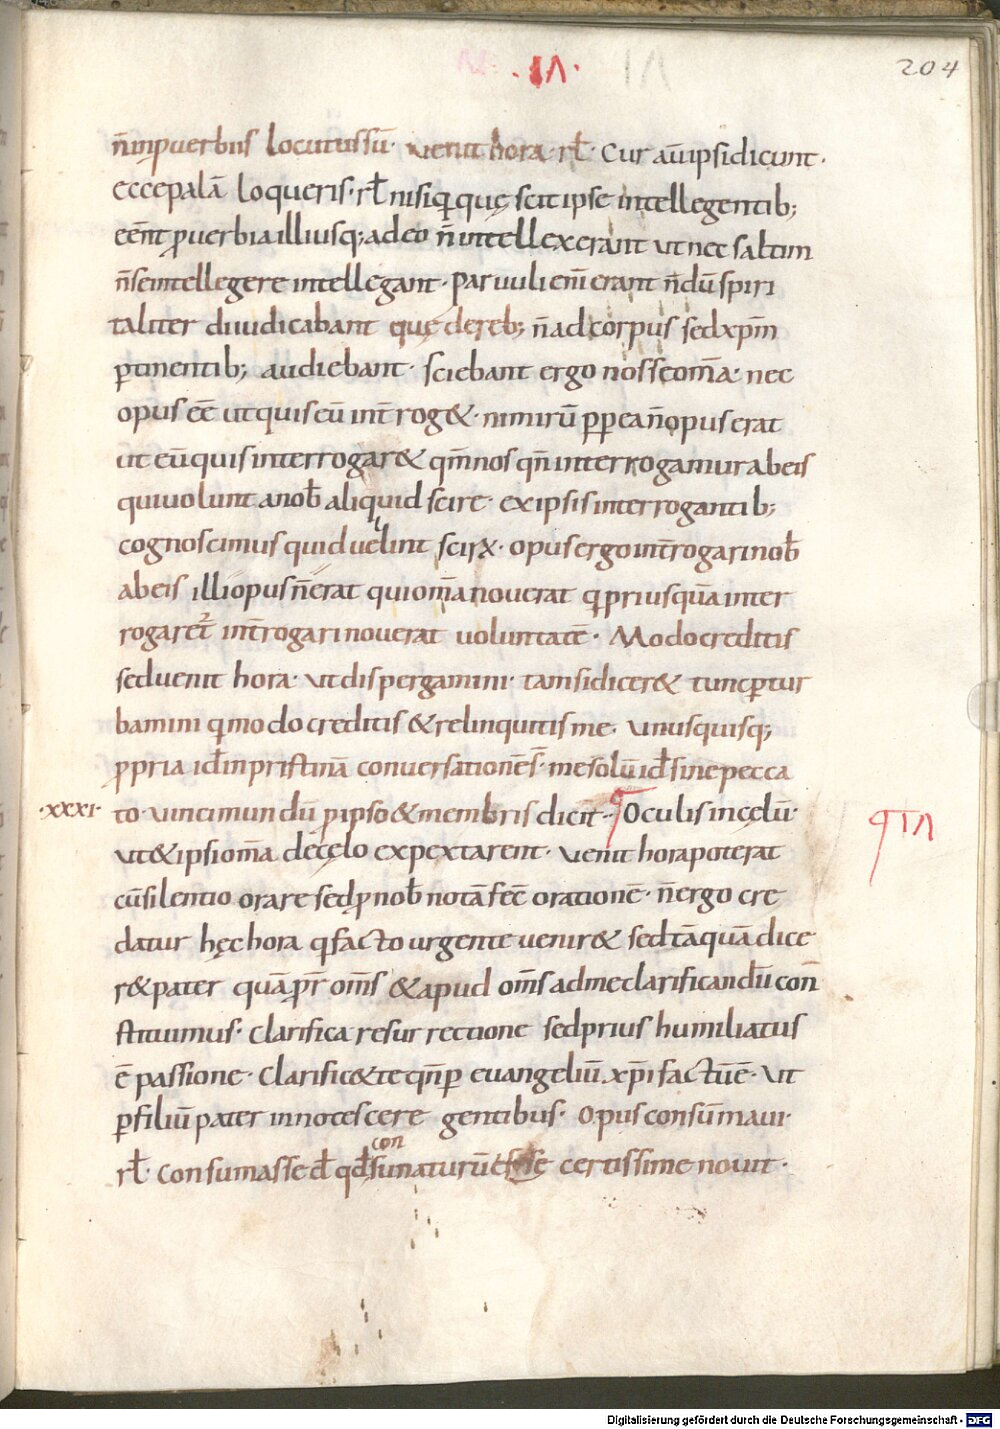 ·VI·
204
n̄ inꝑuerbiis locutussū· uenit hora· rł· Cur aūipsidicunt·
eccepalā loqueris· rł nisiq̣ quę scit ipse intellegentib;
eēnt ꝓuerbiailliusq; adeo n̄ intellexerant ut nec saltim
n̄ se intellegere intellegant· Paruuli eni͞ erant n̄dū spiri
taliter diiudicabant quę dereb; n̄ ad corpus sedxp̄m
ꝑtinentib; audiebant· sciebant ergo nosseom̄a· nec
opus eē ut quis eū int̄rog& · nimirū ꝓpea n̄opus erat
ut eū quis interrogar& qm̄ nos qn̄ interrogamur abeis
quiuolunt anob̄ aliquid scire· exipsis interrogantib;
cognoscimus quid uelint scire· opus ergo int̄rogari nob̄
abeis illi opus n̄ erat qui om̄a nouerat q̣ priusquā inter
rogaret̄ int̄rogari nouerat uoluntatē· Modo creditis
sed uenit hora· ut dispergamini· tamsidicer& tunc ꝑtur
bamini q̣modo creditis & relinquitis me· Unusquisq;
ꝓpria id̄ in pristinā conuersationēs̄· me solū id̄ sine pecca
·XXXI· to· uinci mundū ꝑ ipso & membris dicit· Oculis in cęlū·
VIIII
ut & ipsi om̄a decęlo expextarent· uenit hora poterat
cū silentio orare sed ꝓ nob̄ notā fecē orationē· n̄ ergo cre
datur hęc hora q̣ facto urgente uenir& sed tāquā dice
r& pater quā pr̄ om̄s & apud om̄s ad me clarificandū con
stituimus· clarifica resurrectione sed prius humiliatus
ē passione· Clarific& te qn̄ ꝑ euangeliū xp̄i factū ē· Ut
ꝑ filiū pater innotescere gentibus· Opus consūmaui·
con
rł· Consumasse d̄ qd̄ sūnaturū esse certissime nouit·
Digitalisierung gefördert durch die Deutsche Forschungsgemeinschaft - DFG